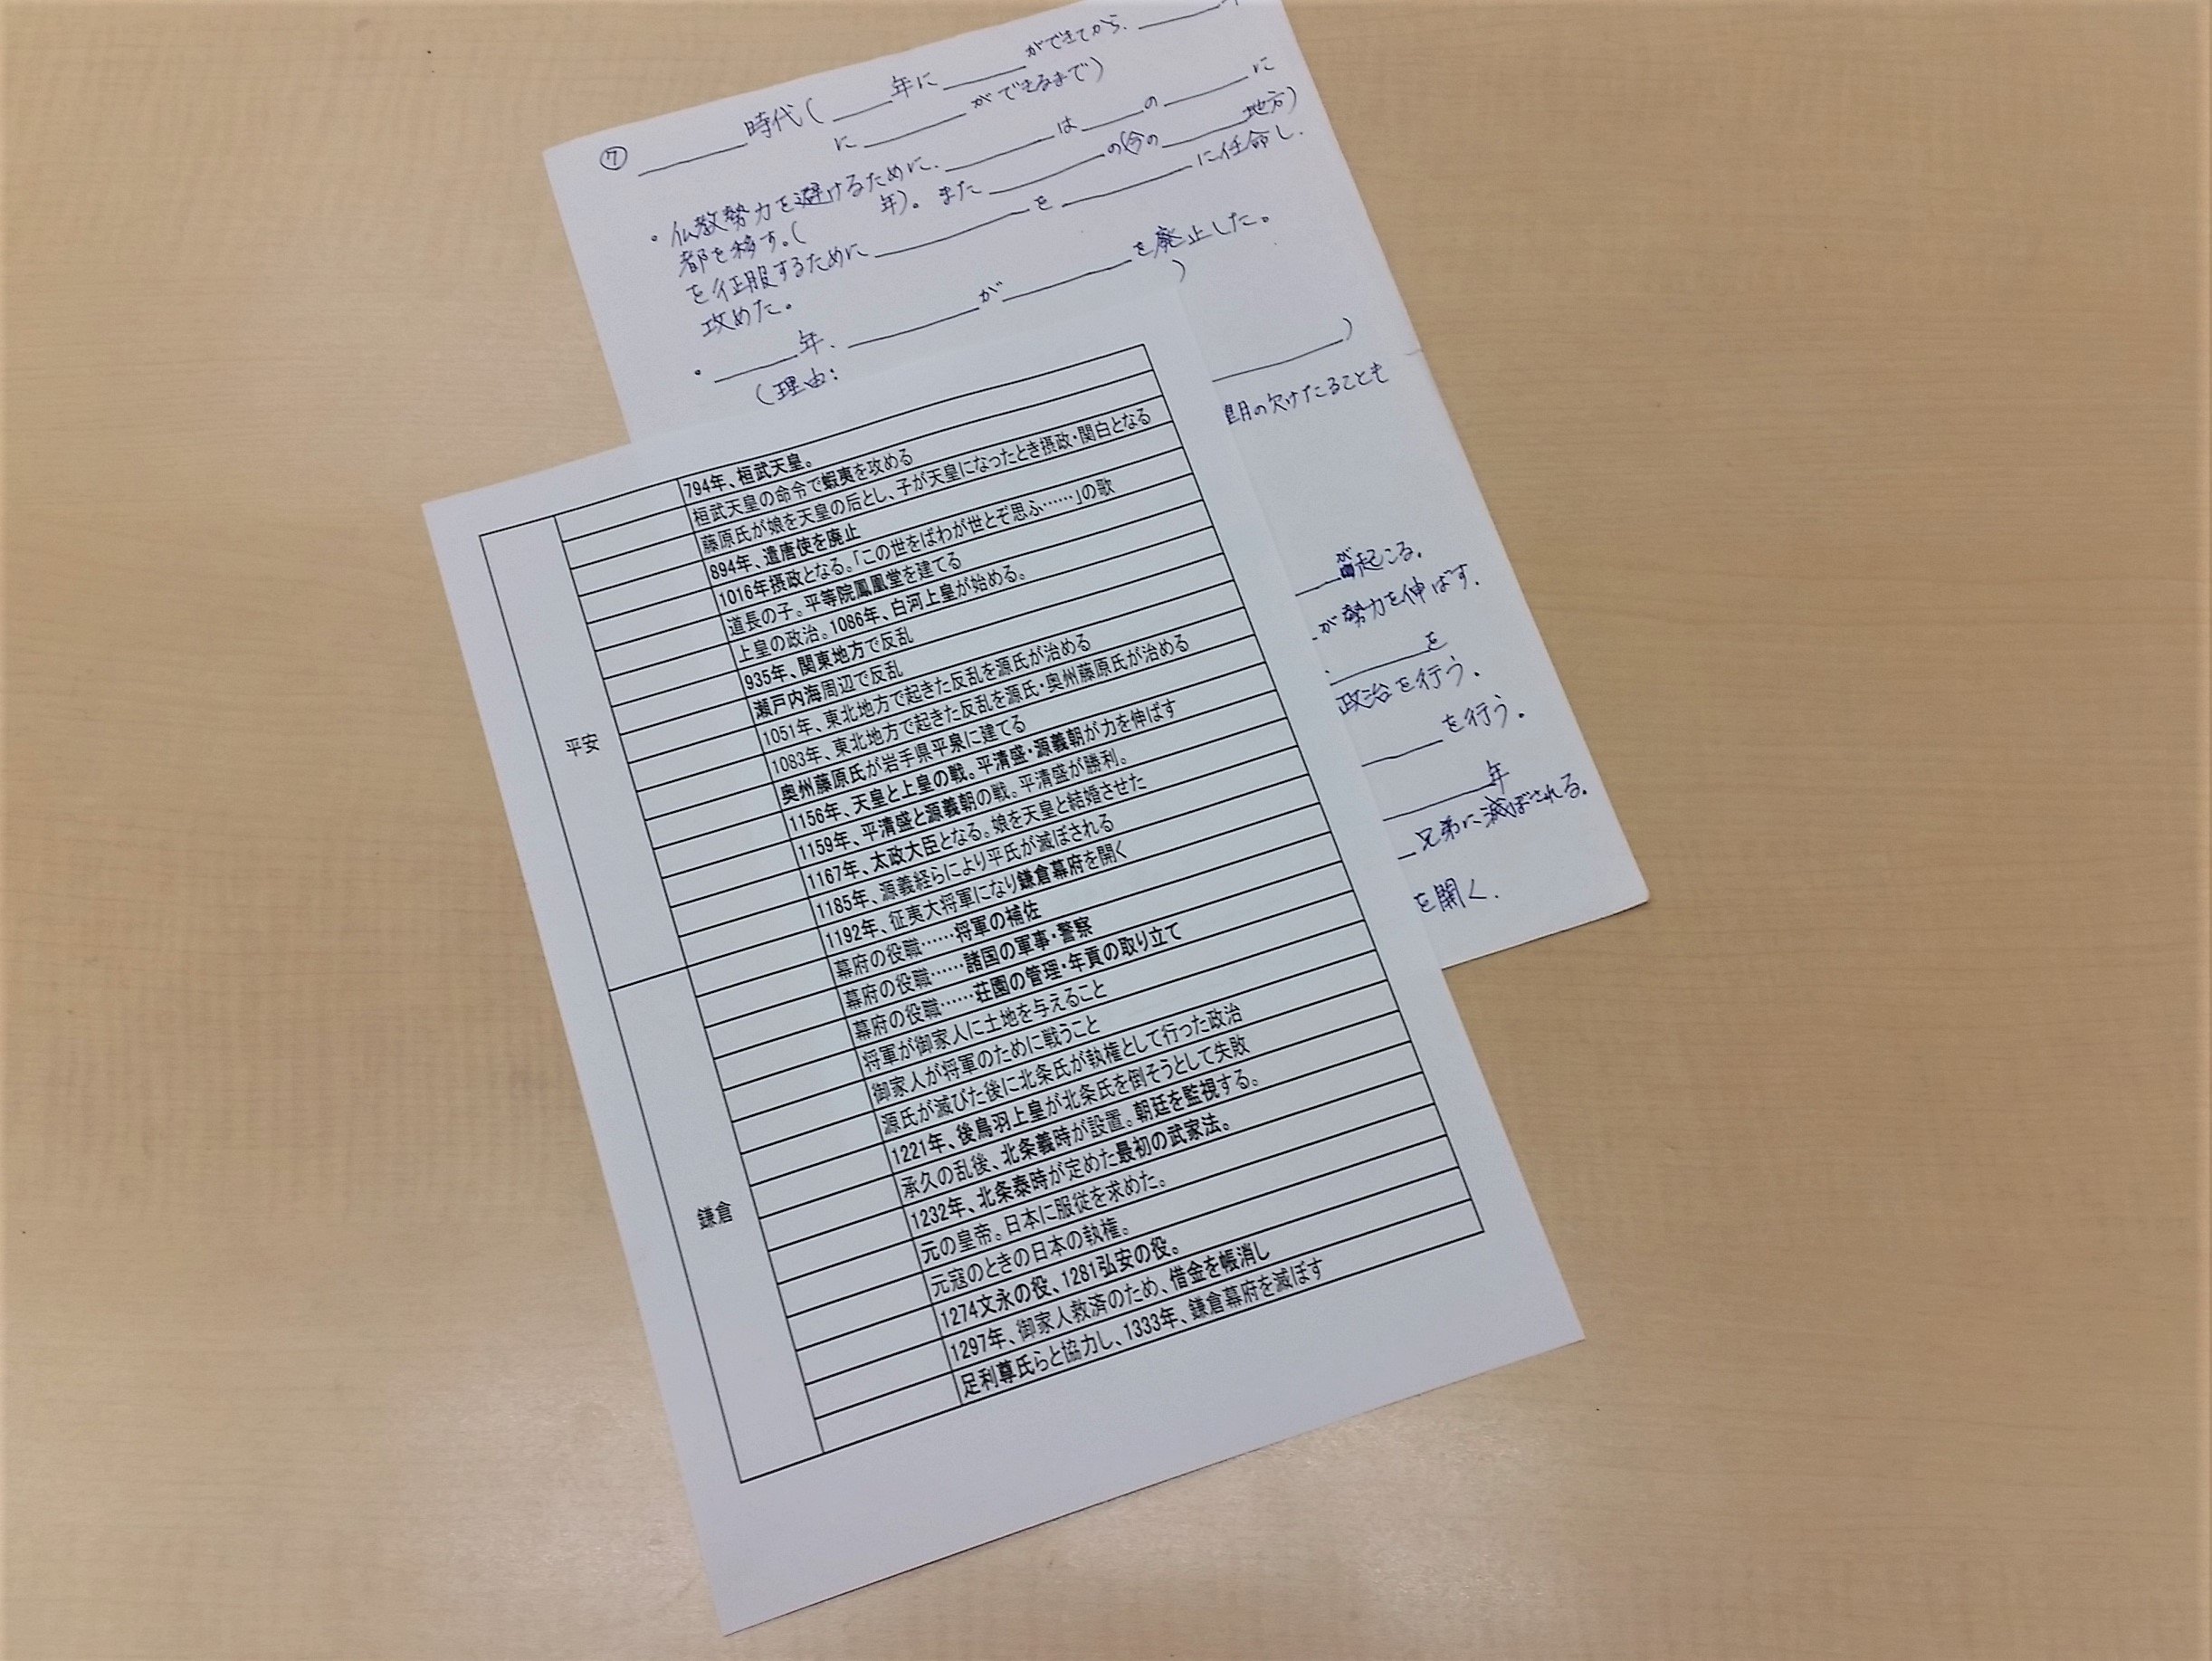 ⑦ 時代( 年に ができてから、
に ができるまで)
・仏教勢力を避けるために、 は の に
都を移す。( 年)。また の(今の 地方)
を征服するために を に任命し、
攻めた。
・ 年、 が を廃止した。
(理由: )
)
望月の欠けたることも
が起こる。
が勢力を伸ばす。
、 を
政治を行う。
を行う。
年
兄弟に滅ぼされる。
を開く。
平安
794年、桓武天皇。
桓武天皇の命令で蝦夷を攻める
藤原氏が娘を天皇の后とし、子が天皇になったとき摂政・関白となる
894年、遣唐使を廃止
1016年摂政となる。「この世をばわが世とぞ思ふ……」の歌
道長の子。平等院鳳凰堂を建てる
上皇の政治。1086年、白河上皇が始める。
935年、関東地方で反乱
瀬戸内海周辺で反乱
1051年、東北地方で起きた反乱を源氏が治める
1083年、東北地方で起きた反乱を源氏・奥州藤原氏が治める
奥州藤原氏が岩手県平泉に建てる
1156年、天皇と上皇の戦。平清盛・源義朝が力を伸ばす
1159年、平清盛と源義朝の戦。平清盛が勝利。
1167年、太政大臣となる。娘を天皇と結婚させた
1185年、源義経らにより平氏が滅ぼされる
鎌倉
1192年、征夷大将軍になり鎌倉幕府を開く
幕府の役職……将軍の補佐
幕府の役職……諸国の軍事・警察
幕府の役職……荘園の管理・年貢の取り立て
将軍が御家人に土地を与えること
御家人が将軍のために戦うこと
源氏が滅びた後に北条氏が執権として行った政治
1221年、後鳥羽上皇が北条氏を倒そうとして失敗
承久の乱後、北条義時が設置。朝廷を監視する。
1232年、北条泰時が定めた最初の武家法。
元の皇帝。日本に服従を求めた。
元寇のときの日本の執権。
1274文永の役、1281弘安の役。
1297年、御家人救済のため、借金を帳消し
足利尊氏らと協力し、1333年、鎌倉幕府を滅ぼす